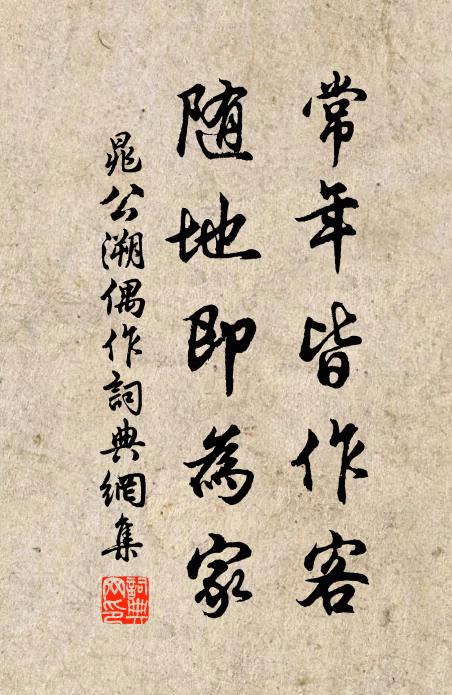 常年皆作客
随地即為家
晁公溯偶作詞典網集
詞典网印